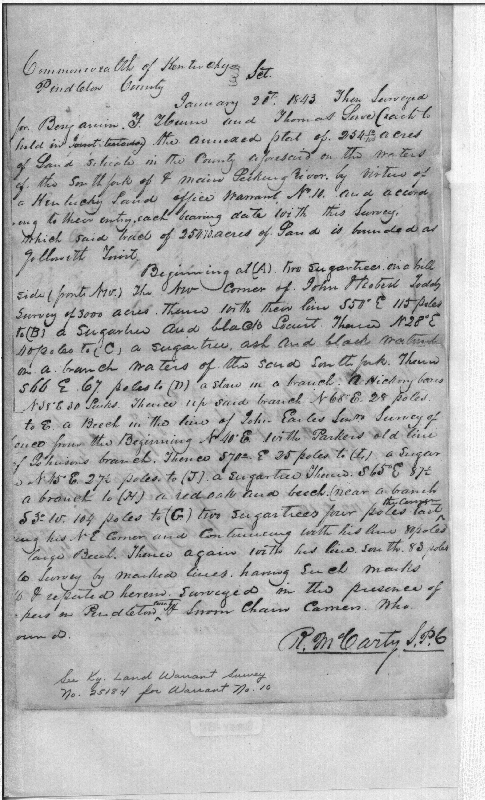 Commonwealth of Kentucky
Pendleton County Sct.
January 20th 1843 Then Surveyed
for Benjamin F. and Thomas Love (each to
hold in Joint tenancy) the annexed plat of 254 acres
of Land situate in the County aforesaid on the waters
of the South fork of & main Licking River, by virtue of
a Kentucky Land office Warrant No. 10. and accord
ing to their entry, each bearing date with this Survey,
Which said tract of 254 acres of Land is bounded as
followith Towit,
Beginning at (A). two Sugartrees on a hill
side (fronts N.W.) The NW Corner of John
Survey of 3000 acres. thence with their line S50° E 115 poles
to (B) a Sugartree and black Locust. Thence N28° E
40 poles to (C) a Sugartree, ash and black walnut
on a branch waters of the said South fork. Thence
S66 E 67 poles to (D) a Stake in a branch: A Hickory bears
N35 E 30 Links. Thence up said branch N65 E 28 poles.
to E. a Beech in the line of John Earles Survey of
ence from the Beginning N40 E with Parkers old line
of branch. Thence S70 E 25 poles to (L). a Sugar
N45 E. 27 poles. to (J). a Sugartree Thence. S65 E 37
a branch to (H). a red oak and beech. (near a branch
S3 W. 104 poles to (G) two Sugartrees four poles East
ing his N E Corner and Continueing with his line 89 poles
large Beech. Thence again with his line South. 83 poles
to Survey by marked lines. having Such marks
& reported herein. Surveyed in the presence of
in Pendleton County Sworn Chain Carriers. Who

R. McCarty S.P.C
See Ky. Land Warrant Survey
No. 25184 for Warrant No. 10